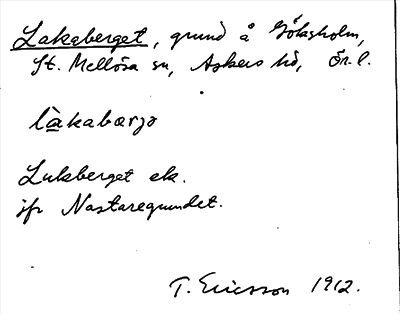 Lakaberget, grund å Göksholm,
St. Mellösa sn, Askers hd, Ör. l.
làkabarjo
Lukberget ek.
jfr Nastaregrundet.
T. Ericsson 1912.